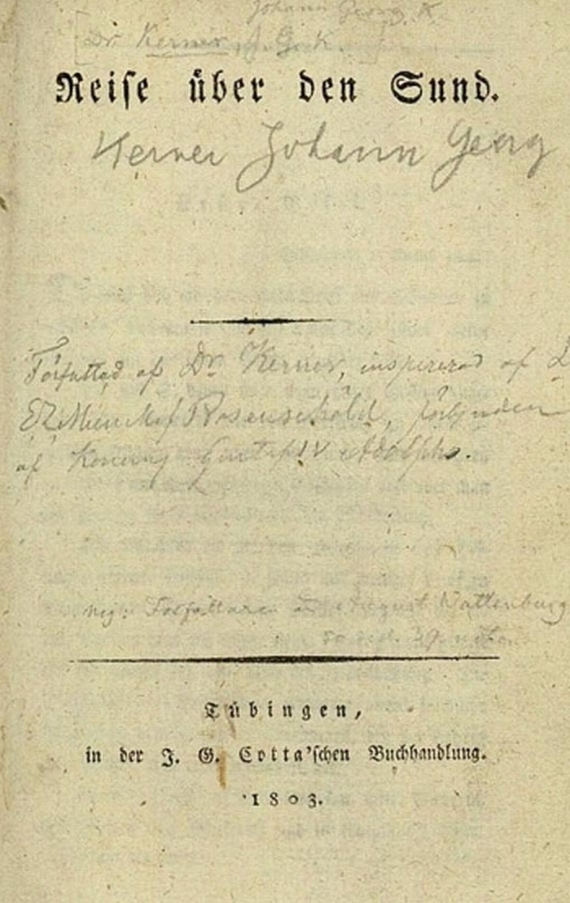 Johann Georg K.
[Dr. Kerner J. G. K.
Reise über den Sund.
Kerner Johann Georg
Författad af Dr. Kerner, inspirerad af
Rosenschold,
af Konung Gustaf IV Adolphs.
nej. Författaren August Wattenburg
Tübingen,
in der J. G. Cotta'schen Buchhandlung.
1803.